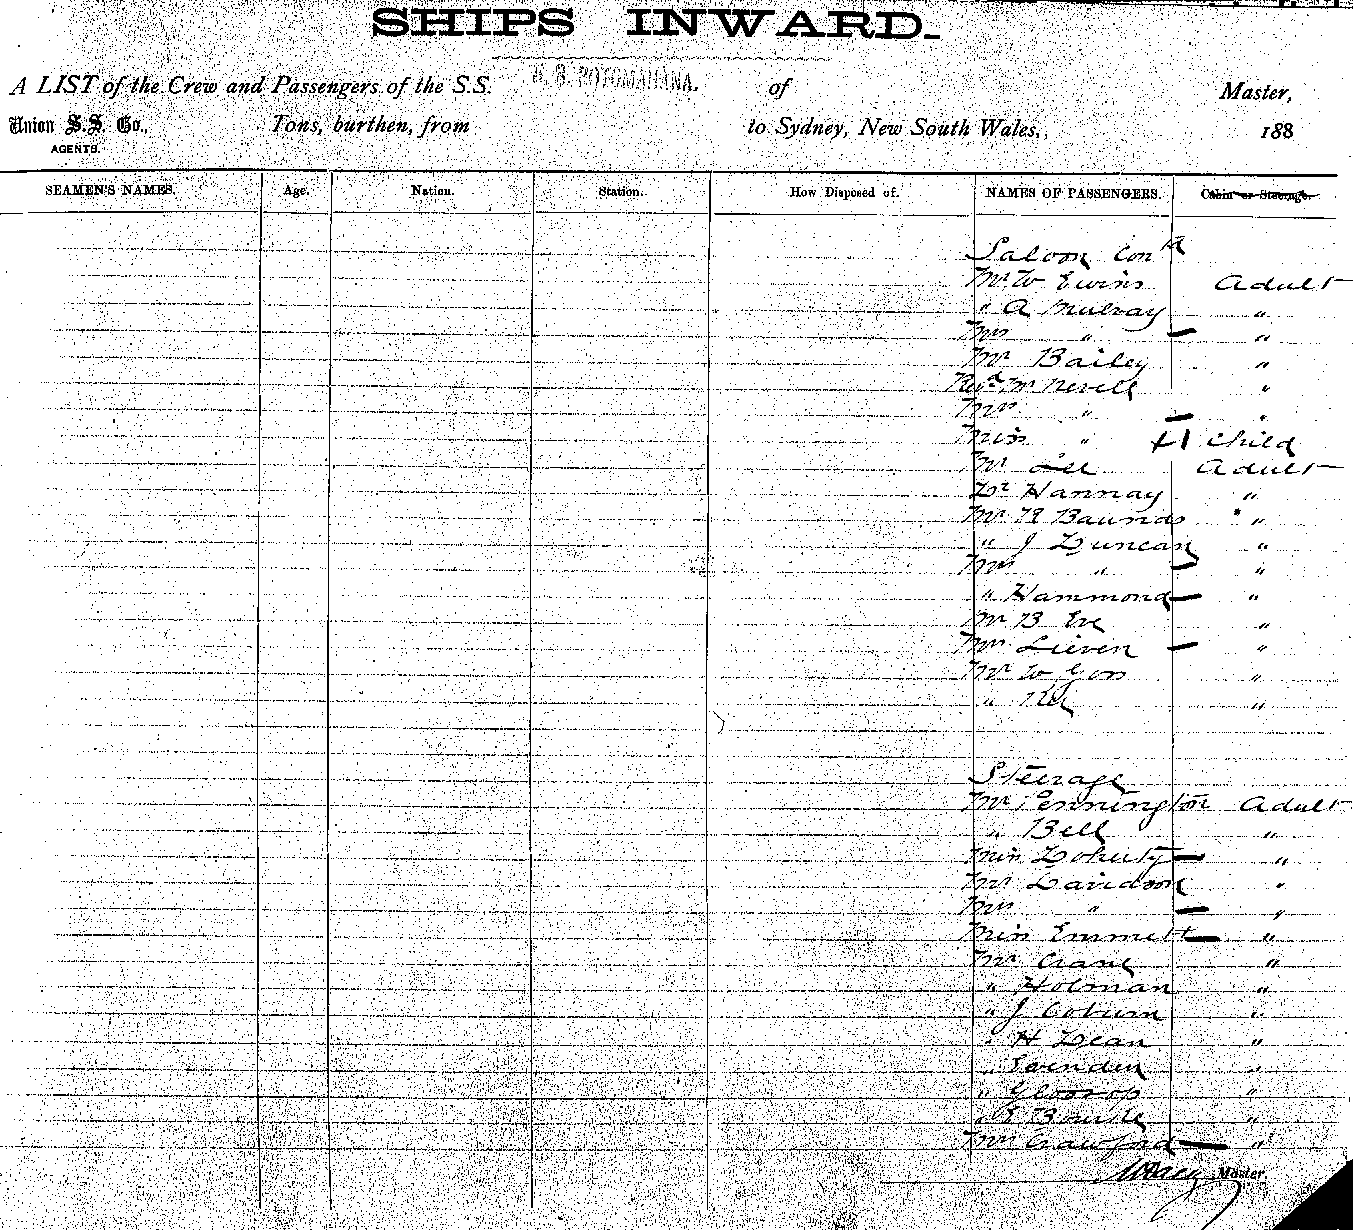 SHIPS INWARD.
A LIST of the Crew and Passengers of the S.S. ROTOMAHANA. of Master,
Union S.S. Co., Tons, burthen, from to Sydney, New South Wales, 188
AGENTS.
SEAMEN'S NAMES. Age. Nation. Station. How Disposed of. NAMES OF PASSENGERS. Cabin or Steerage.
Saloon Contd
Mr W Ewins Adult
" A Mulvay "
Mrs " "
Mr Bailey "
Revd Mr Nevill "
Mrs " "
Miss " 1 Child
Mr Lee Adult
Dr Hannay "
Mr R Baunds "
" J Duncan "
Mrs " "
" Hammond "
Mr B Eve "
Mrs Lieven "
Mr W "
" "
Steerage
Mr Pennington Adult
" Bell "
Miss Doherty "
Mr Davidson "
Mrs " "
Miss Emmett "
Mr Crane "
" Holman "
" J Coburn "
" H Dean "
" Evenden "
" "
" "
Mrs Crawford "
Master